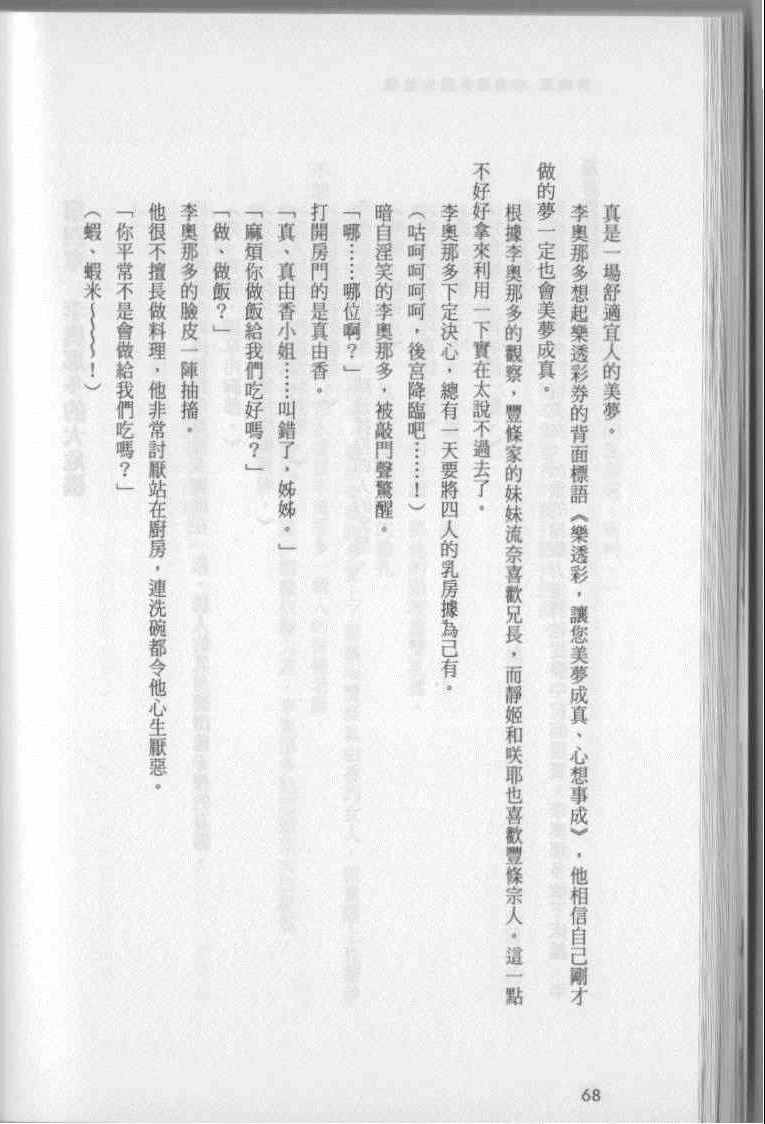 真是一場舒適宜人的美夢。
李奧那多想起樂透彩券的背面標語《樂透彩，讓您美夢成真、心想事成》，他相信自己剛才
做的夢一定也會美夢成真。
根據李奧那多的觀察，豐條家的妹妹流奈喜歡兄長，而靜姬和咲耶也喜歡豐條宗人。這一點
不好好拿來利用一下實在太說不過去了。
李奧那多下定決心，總有一天要將四人的乳房據為己有。
（咕呵呵呵呵，後宮降臨吧……！）
暗自淫笑的李奧那多，被敲門聲驚醒。
「哪……哪位啊？」
打開房門的是真由香。
「真、真由香小姐……叫錯了，姊姊。」
「麻煩你做飯給我們吃好嗎？」
「做、做飯？」
李奧那多的臉皮一陣抽搐。
他很不擅長做料理，他非常討厭站在廚房，連洗碗都令他心生厭惡。
「你平常不是會做給我們吃嗎？」
（蝦、蝦米～～～～！）
68